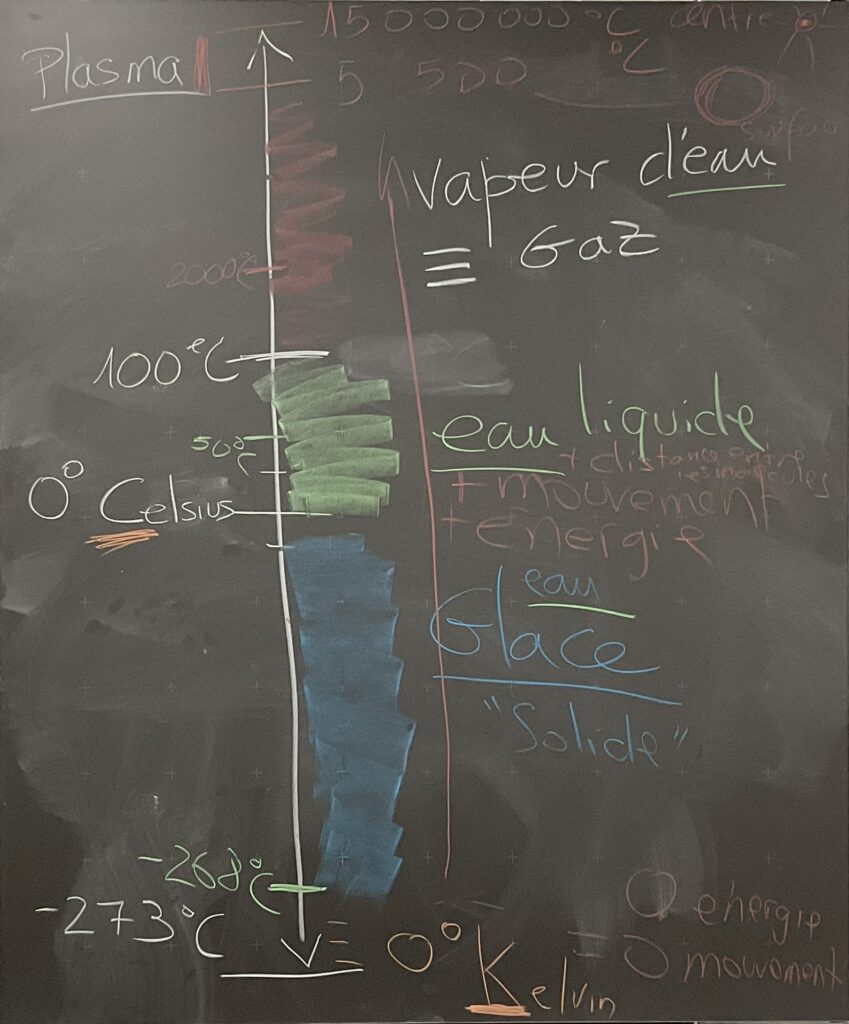 15 000 000 °C centre
Plasma
5 500 °C
surface
vapeur d'eau
≡ Gaz
2000°C
100°C
eau liquide
50°C
+ distance entre
les molécules
+ mouvement
0° Celsius
+ énergie
eau
Glace
"Solide"
-268°C
0 énergie
-273°C ≡ 0° Kelvin
= 0 mouvement